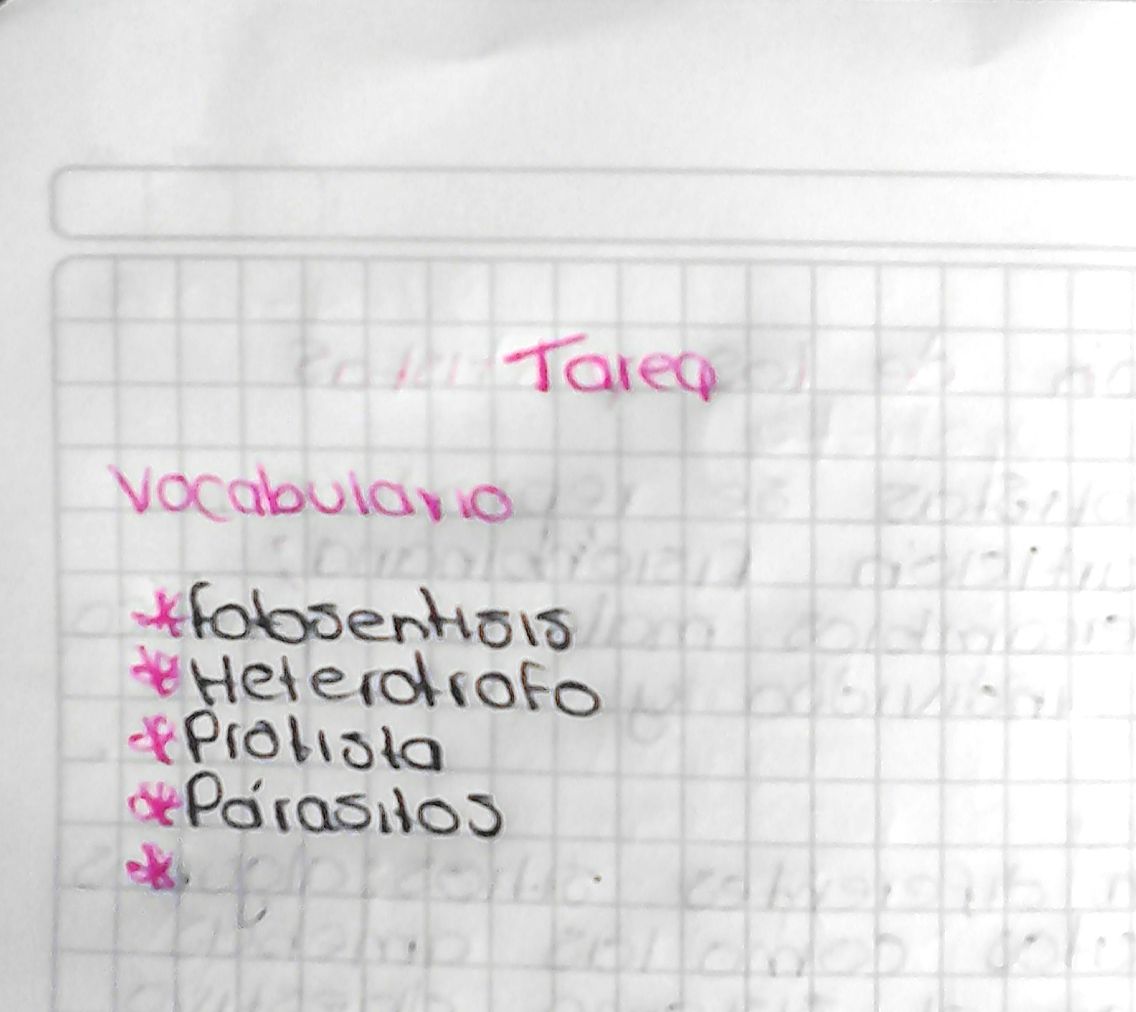 Tarea
Vocabulario
*Fotosentisis
*Heterotrofo
*Protista
*Párasitos
*